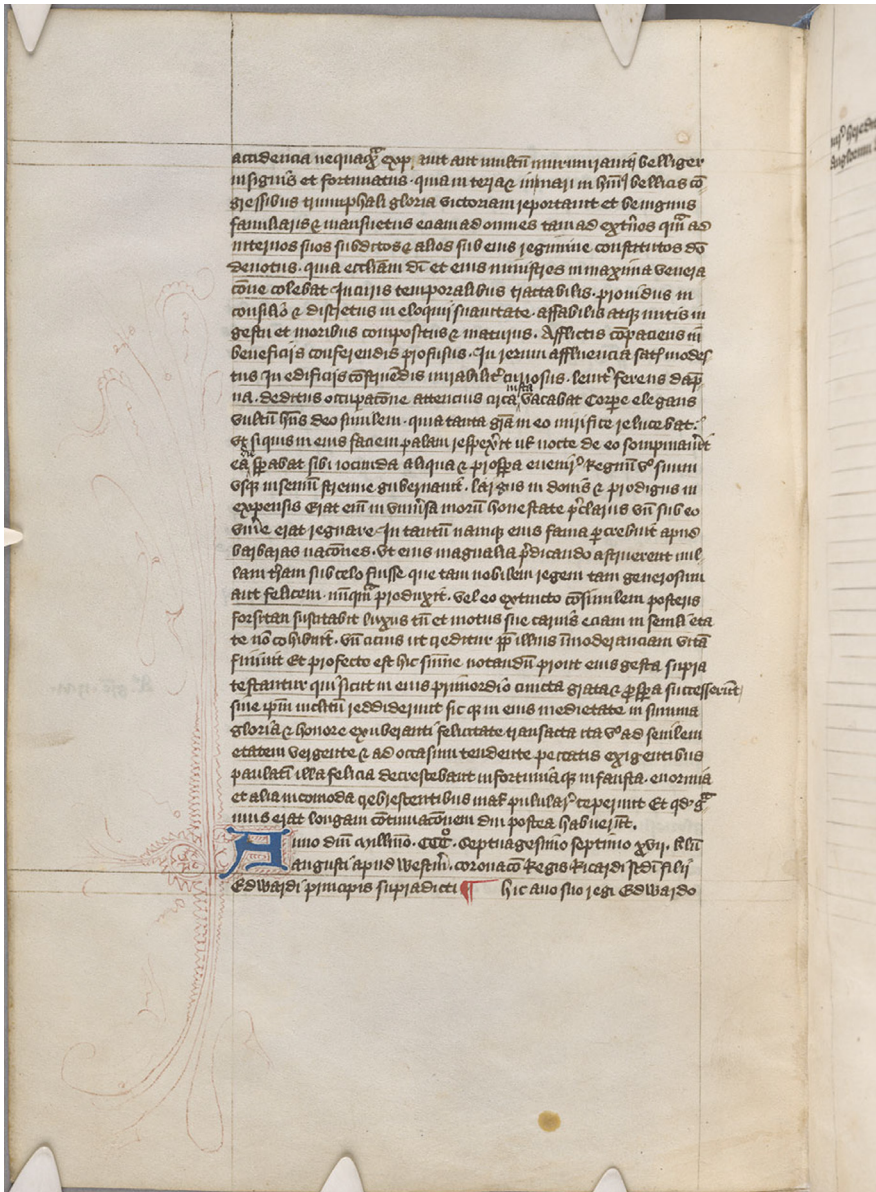 accidencia nequaq̄ exp aut aut multū murmurantē belliger
insignis et fortunatus · quia in terra ⁊ in mari in hm̄oī bellicis cō
gressibus triumphali gloria victoriam reportauit et benignus
familiaris ⁊ mansuetus eciam ad omnes tam ad ext̄nos qm̄ ad
internos suos subditos ⁊ alios sub eius regimine constitutos dō
deuotus · quia eccliam di et eius ministros in maxima venera
cōne colebat In curis temporalibus tractabilis · prouidus in
consilio ⁊ discretus in eloquii suauitate · affabilis atq mitis in
gestu et moribus compositus ⁊ maturus · Afflictis cōpaciens in
beneficijs conferendis profusus · In rerum affluencia satis modes
tus In edificijs cōstruēdis mirabilit curiosus · leuit ferens dāp
na · deditus occupacōne attencius circa vacabat Corpe elegans
vultū hn̄s deo similem · quia tanta grā in eo mirifice relucebat ·
vt siquis in eius faciem palam respexit ul nocte de eo sompniauit
eā spabat sibi iocunda aliqua ⁊ prospa euenire Regnū v̊o suum
vsq in senium strenue gubernauit · largus in donis ⁊ prodigus in
expensis Erat eni in vniusa morū honestate pclarius vn̄ sub eo
viuere erat regnare In tantū namque eius fama pcrebuit apud
barbaras nacōnes · vt eius magnalia pdicando astruerent nul
lam t̄ram sub celo fuisse que tam nobilem regem tam generosum
aut felicem · nūqm̄ produxit · vel eo extincto cōsimilem posteris
forsitan suscitabit luxus tn̄ et motus sue carnis eciam in senili eta
te nō cohibuit · vn̄ cicius ut creditur pp̄ illius īmoderanciam vitā
finiuit Et profecto est hic summe notandū prout eius gesta supra
testantur qui sicut in eius primordio cuncta grata ⁊ pspa successerūt
sine ipm̄ inclitū reddiderunt sic q in eius medietate in summa
gloria ⁊ honore exuberanti felicitate transacta ita v̊o ad senilem
etatem vergente ⁊ ad occasum tendente peccatis exigentibus
paulati illa felicia decrescebant infortunia q infausta · enormia
et alia incomoda crebrescentibus mal pulular ceperunt Et qd g̃
uius erat longam cōtinuacōnem diu postea habuerūt ·
Anno dn̄i Millimo · CCC̊ · Septuagesimo septimo xvij · kln̄
augusti apud westm̄ · coronacō Regis Ricardi scd̄i filij
Edwardi principis supradicti ¶ hic auo suo regi Edwardo